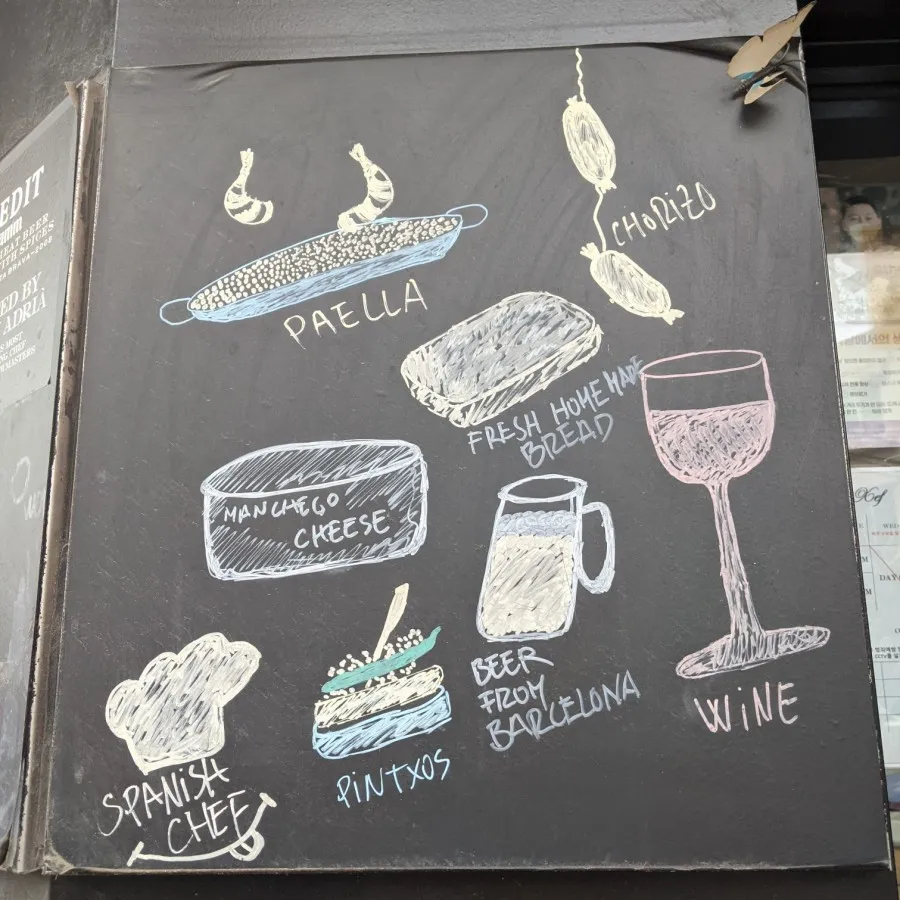 EDIT
ED BY
ADRIÀ
CHORIZO
PAELLA
FRESH HOME MADE
BREAD
MANCHEGO
CHEESE
BEER
FROM
BARCELONA
WINE
PINTXOS
SPANISH
CHEF